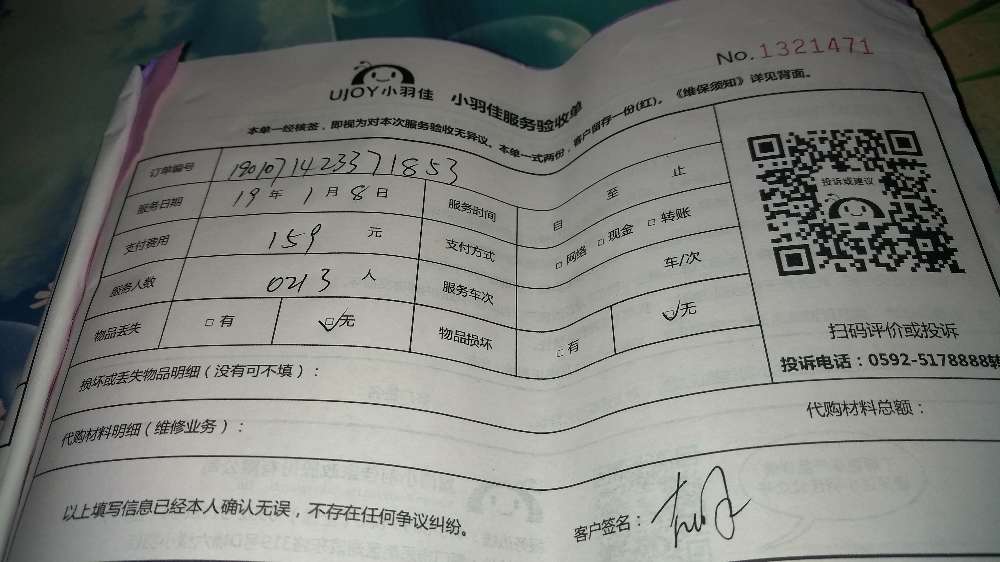 No.1321471
UJOY小羽佳 小羽佳服务验收单
本单一经核签，即视为对本次服务验收无异议。本单一式两份，客户留存一份(红)。《维保须知》详见背面。
订单编号 190107142337 1853
服务日期 19年1月8日 服务时间 自 至 止
支付费用 159 元 支付方式 □网络 □现金 □转账
服务人数 0213 人 服务车次 车/次
物品丢失 □有 ☑无 物品损坏 □有 ☑无
投诉或建议
扫码评价或投诉
投诉电话：0592-5178888转
损坏或丢失物品明细（没有可不填）：
代购材料明细（维修业务）： 代购材料总额：
以上填写信息已经本人确认无误，不存在任何争议纠纷。 客户签名：